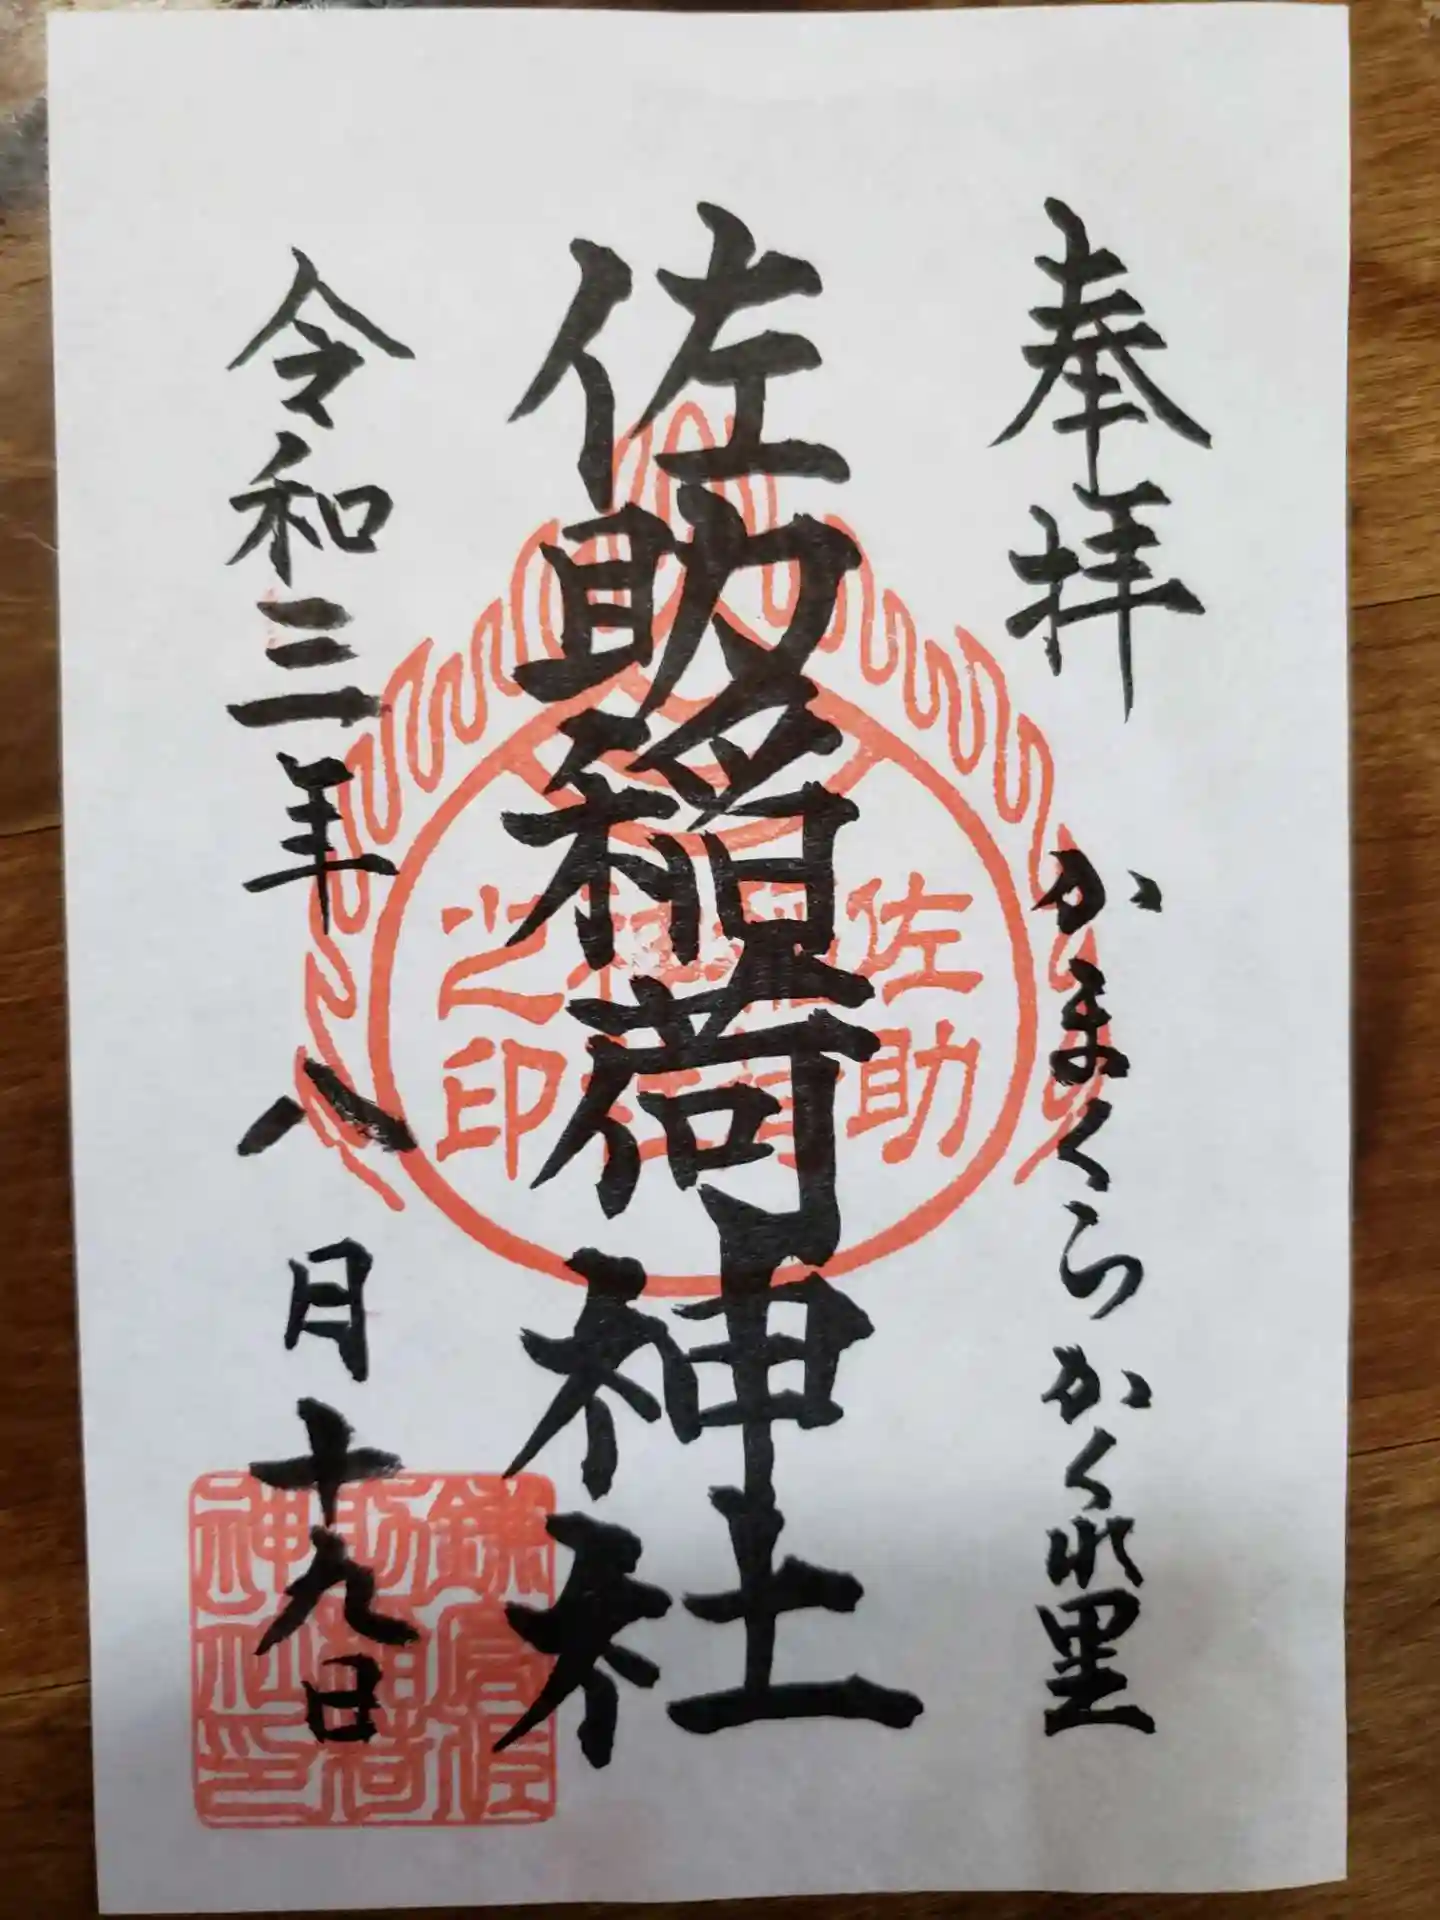 奉拝
かまくらかくれ里
佐助稲荷神社
令和三年八月十九日
佐助
稲荷
神社
之印
鎌倉佐
助稲荷
神社印